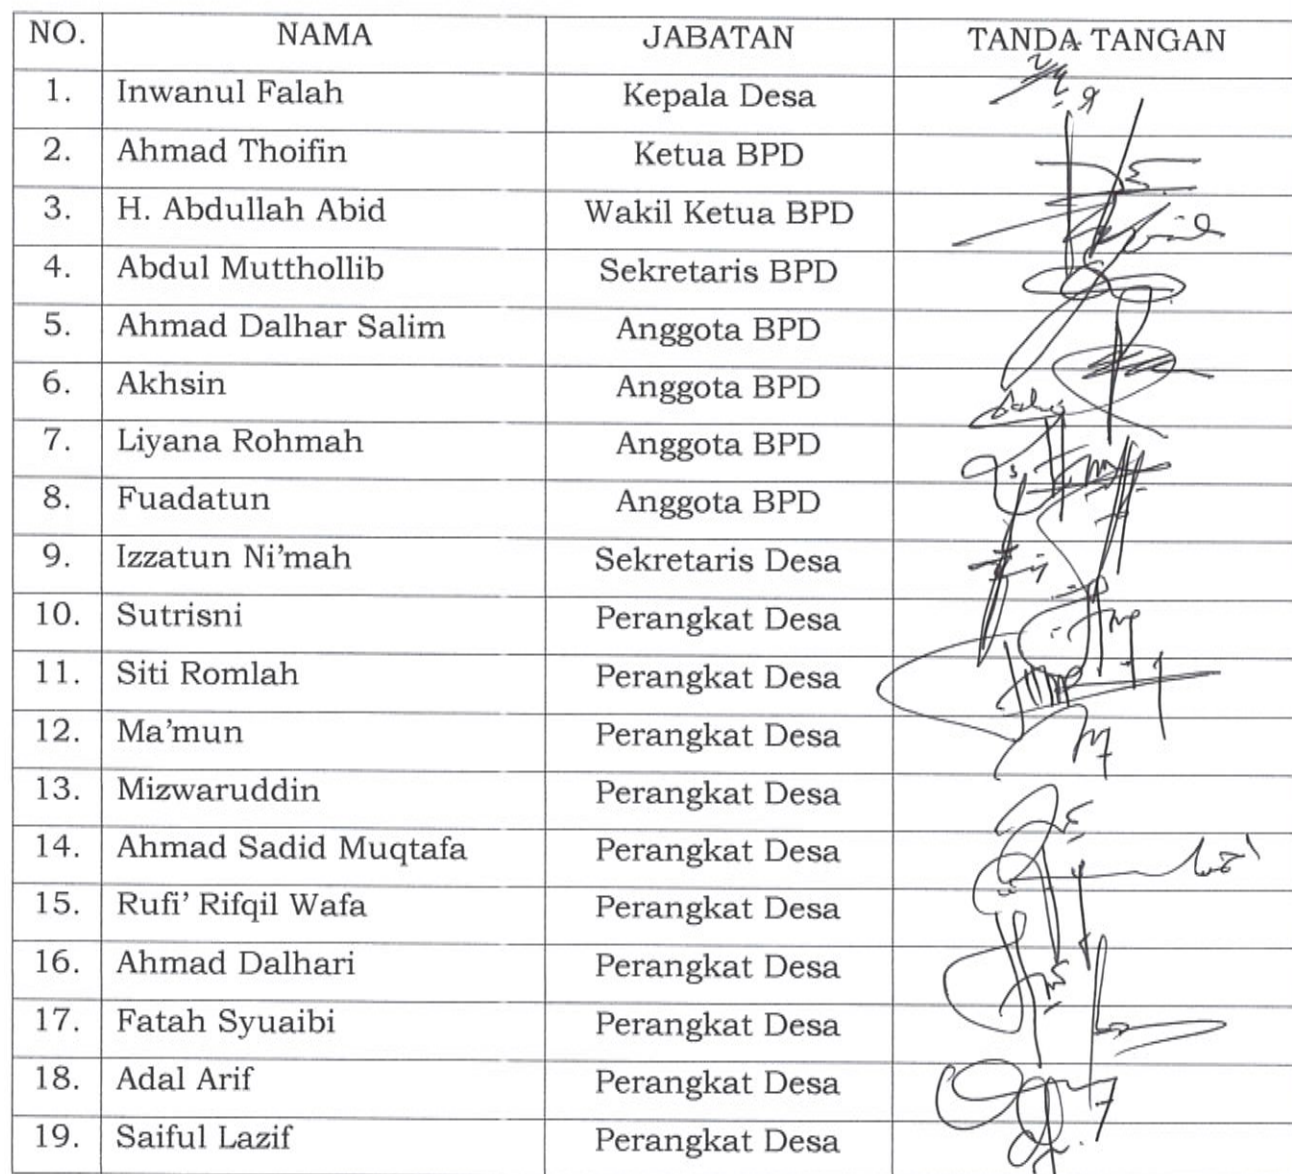 NO. NAMA JABATAN TANDA TANGAN
1. Inwanul Falah Kepala Desa
2. Ahmad Thoifin Ketua BPD
3. H. Abdullah Abid Wakil Ketua BPD
4. Abdul Mutthollib Sekretaris BPD
5. Ahmad Dalhar Salim Anggota BPD
6. Akhsin Anggota BPD
7. Liyana Rohmah Anggota BPD
8. Fuadatun Anggota BPD
9. Izzatun Ni’mah Sekretaris Desa
10. Sutrisni Perangkat Desa
11. Siti Romlah Perangkat Desa
12. Ma’mun Perangkat Desa
13. Mizwaruddin Perangkat Desa
14. Ahmad Sadid Muqtafa Perangkat Desa
15. Rufi’ Rifqil Wafa Perangkat Desa
16. Ahmad Dalhari Perangkat Desa
17. Fatah Syuaibi Perangkat Desa
18. Adal Arif Perangkat Desa
19. Saiful Lazif Perangkat Desa